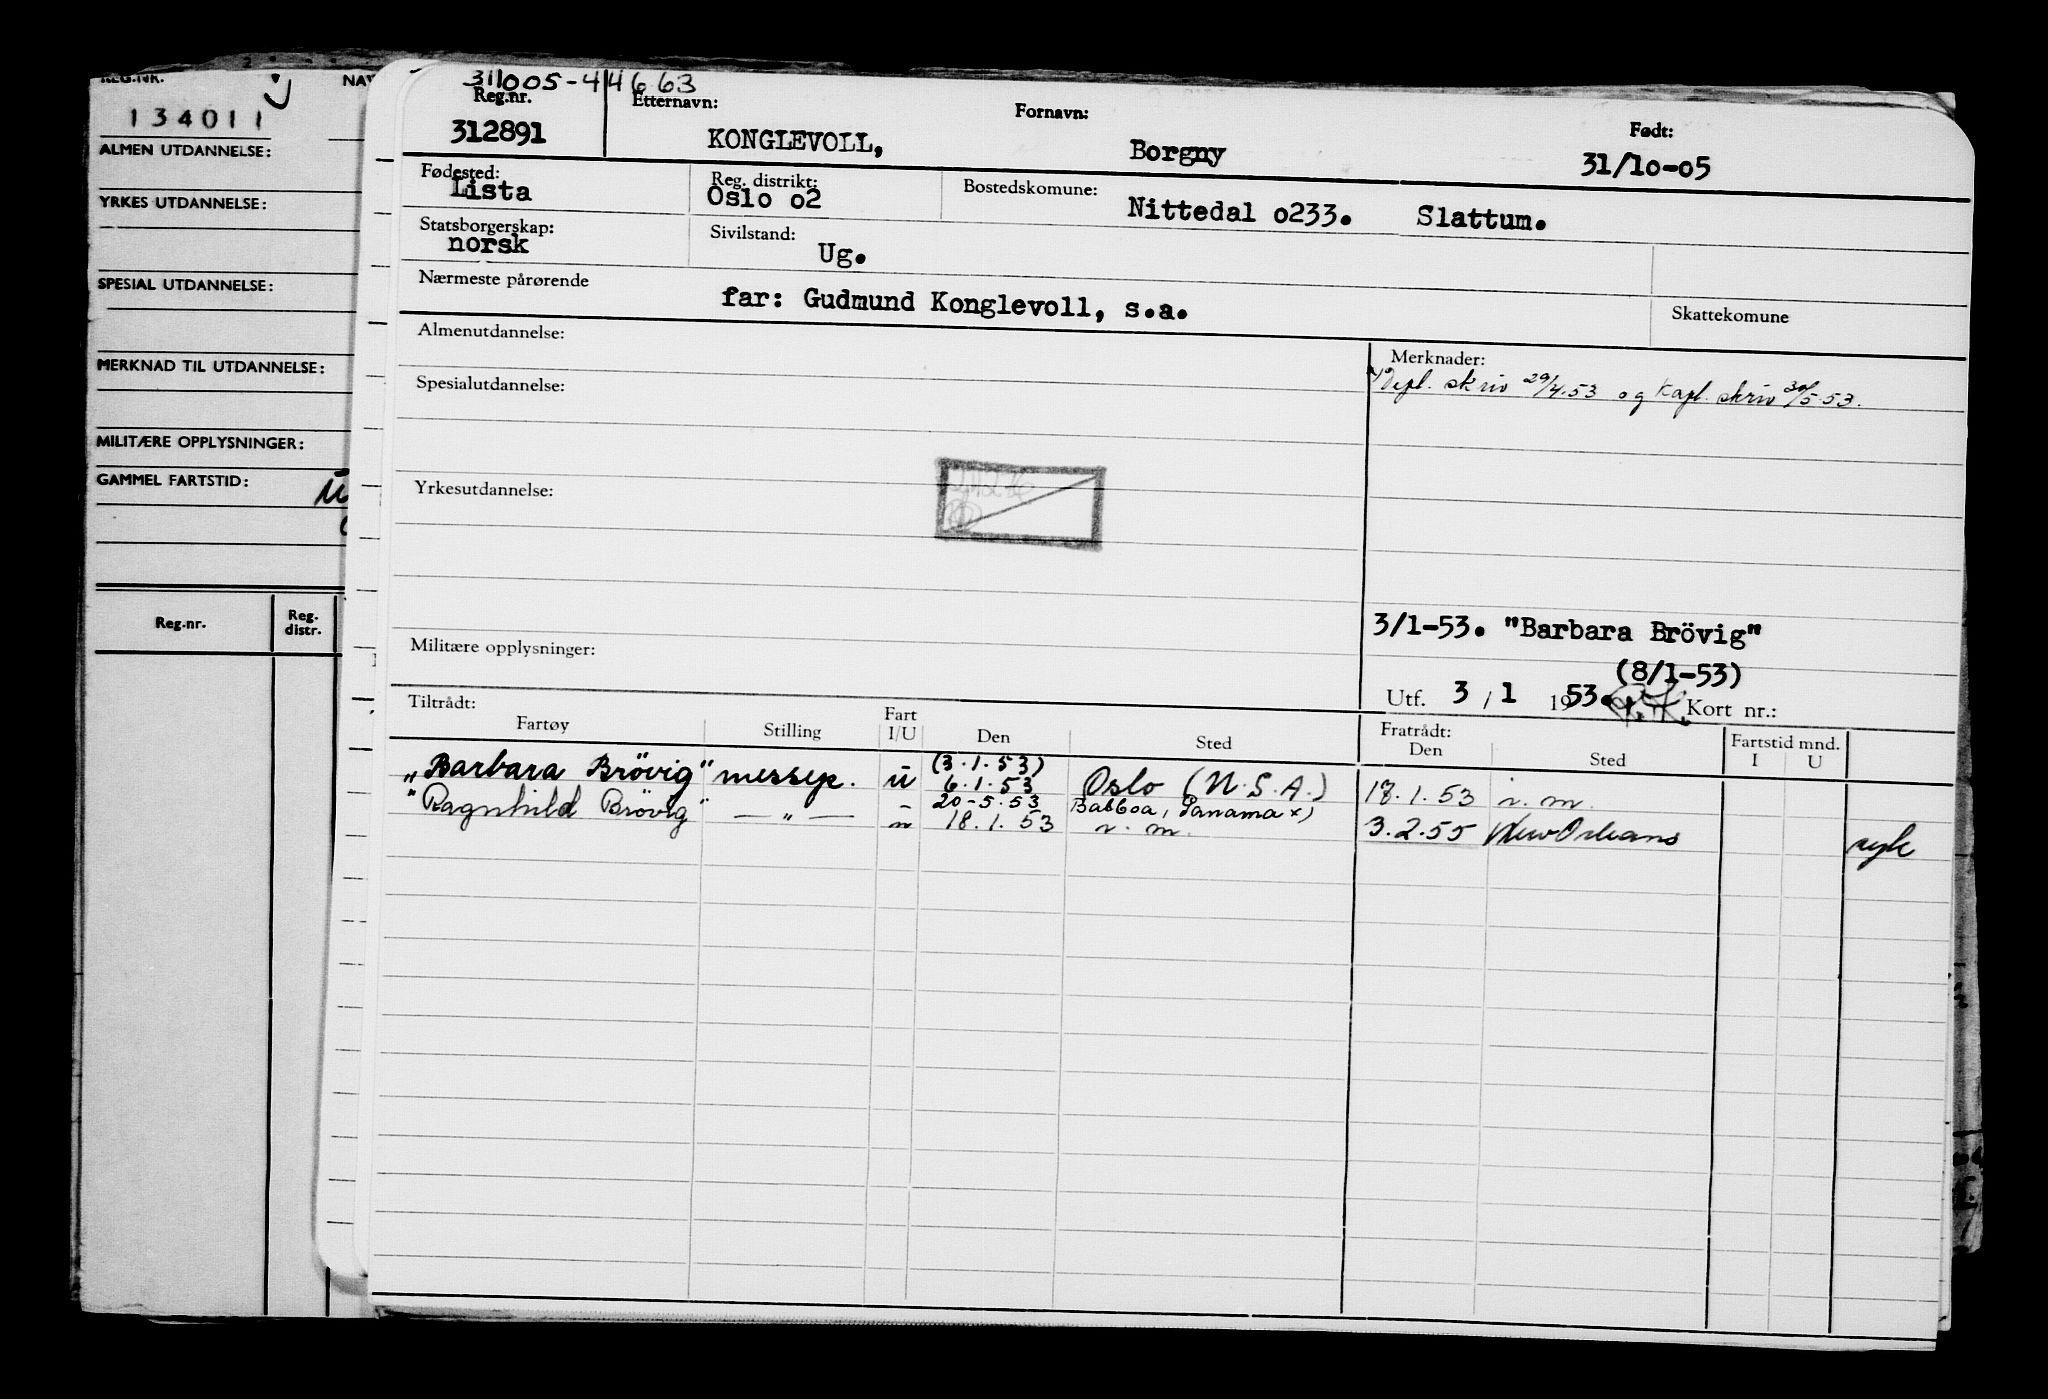 REG.NR.
134011
ALMEN UTDANNELSE:
YRKES UTDANNELSE:
SPESIAL UTDANNELSE:
MERKNAD TIL UTDANNELSE:
MILITÆRE OPPLYSNINGER:
GAMMEL FARTSTID:
Reg.nr. Reg. distr.
311005-44663
Reg.nr. Etternavn: Fornavn: Født:
312891 KONGLEVOLL, Borgny 31/10-05
Fødested: Reg. distrikt: Bostedskomune:
Lista Oslo o2 Nittedal o233. Slattum.
Statsborgerskap: Sivilstand:
norsk Ug.
Nærmeste pårørende Skattekomune
far: Gudmund Konglevoll, s.a.
Almenutdannelse: Merknader:
skriv 29/4.53 og Kapt. skriv 30/5.53.
Spesialutdannelse:
Yrkesutdannelse:
3/1-53. "Barbara Brövig"
(8/1-53)
Militære opplysninger:
Utf. 3 / 1 1953. Kort nr.:
Tiltrådt: Fratrådt:
Fartøy Stilling Fart I/U Den Sted Den Sted Fartstid mnd. I U
"Barbara Brövig" messep. u (3.1.53) 6.1.53 Oslo (N.S.A.) 17.1.53 r.m.
"Ragnhild Brövig" — " — - 20-5.53 Balboa, Panama x)
" 18.1.53 r.m. 3.2.55 New Orleans syk